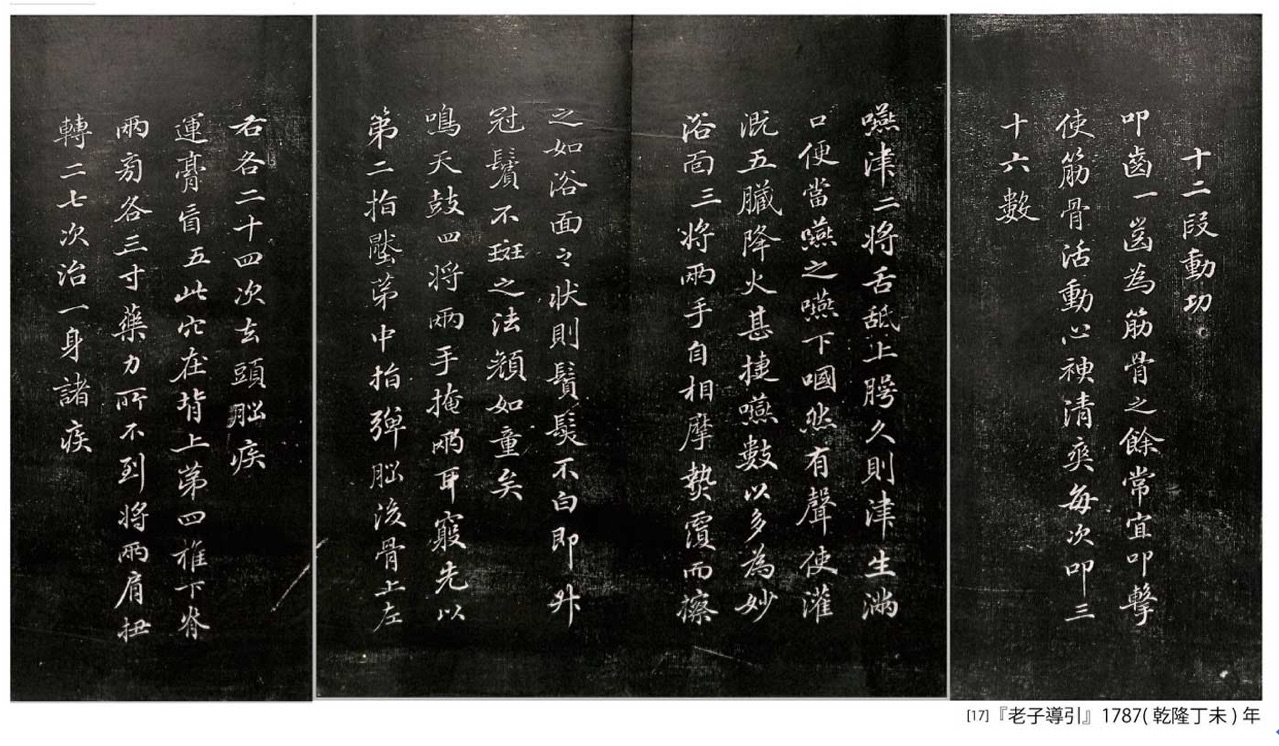 十二段動功
叩齒一齒為筋骨之餘常宜叩擊
使筋骨活動心神清爽每次叩三
十六數
嚥津二將舌舐上腭久則津生滿
口便當嚥之嚥下嘓然有聲使灌
溉五臟降火甚捷嚥數以多為妙
浴面三將兩手自相摩熱覆面擦
之如浴面之狀則鬚髮不白即升
冠鬢不斑之法顏如童矣
鳴天鼓四將兩手掩兩耳竅先以
第二指壓第中指彈腦後骨上左
右各二十四次去頭腦疾
運膏肓五此穴在背上第四椎下脊
兩旁各三寸藥力所不到將兩肩扭
轉二七次治一身諸疾
[17]『老子導引』1787(乾隆丁未)年